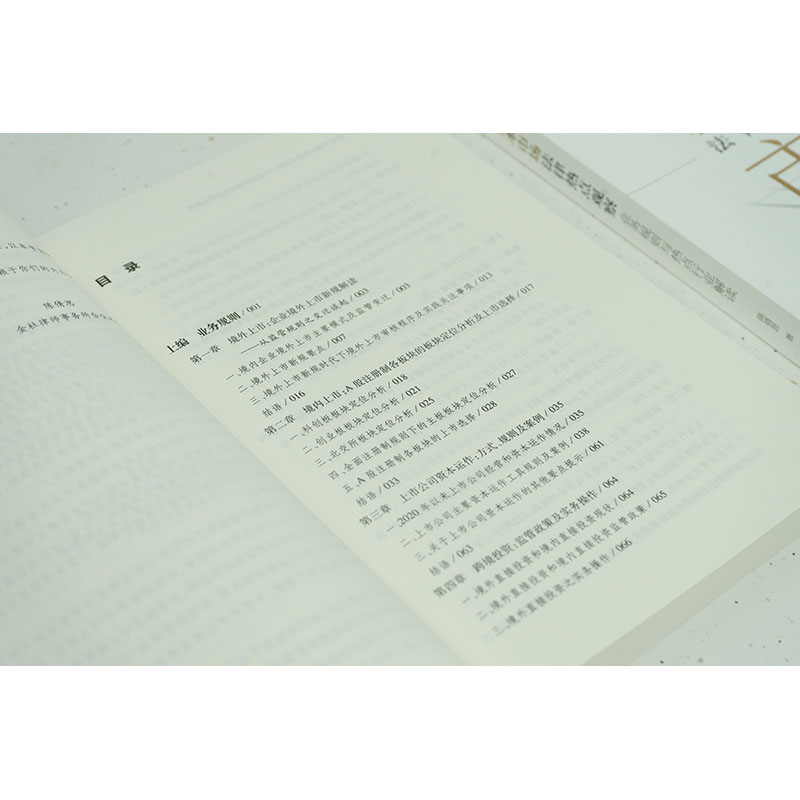 目 录
上编 业务规则/001
第一章 境外上市:企业境外上市新规解读
——从监管规则之变迁谈起/003
一、境内企业境外上市主要模式及监管变迁/003
二、境外上市新规要点/007
三、境外上市新规时代下境外上市审核程序及实践关注事项/013
结语/016
第二章 境内上市:A股注册制各板块的板块定位分析及上市选择/017
一、科创板板块定位分析/018
二、创业板板块定位分析/021
三、北交所板块定位分析/025
四、全面注册制规则下的主板板块定位分析/027
五、A股注册制各板块的上市选择/028
结语/033
第三章 上市公司资本运作:方式、规则及案例/035
一、2020年以来上市公司经营和资本运作情况/035
二、上市公司主要资本运作工具规则及案例/038
三、关于上市公司资本运作的其他要点提示/061
结语/063
第四章 跨境投资:监管政策及实务操作/064
一、境外直接投资和境内直接投资现状/064
二、境外直接投资和境内直接投资监管政策/065
三、境外直接投资之实务操作/066
业务规则与热点行业解读
著
法